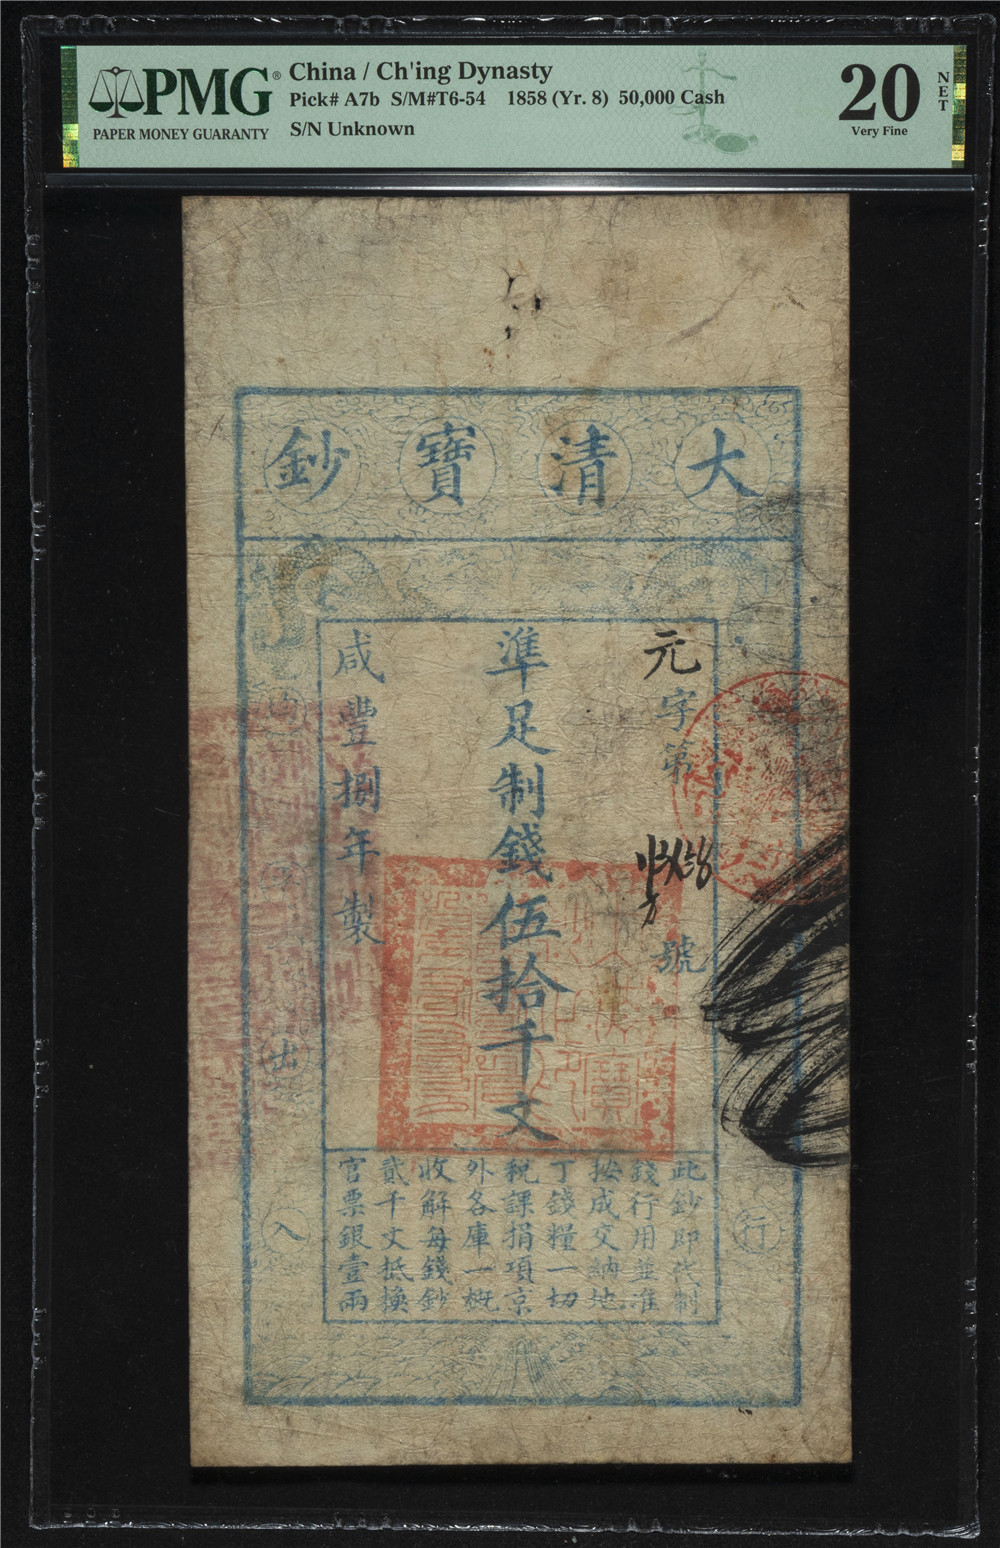 PMG®
PAPER MONEY GUARANTY
China / Ch'ing Dynasty
Pick# A7b S/M#T6-54 1858 (Yr. 8) 50,000 Cash
S/N Unknown
20
NET
Very Fine
大清寶鈔
元字第
號
準足制錢伍拾千文
咸豐捌年製
此鈔即代制
錢行用並準
按成交納地
丁錢糧一切
稅課捐項京
外各庫一概
收解每錢鈔
貳千文抵換
官票銀壹兩
行
出入